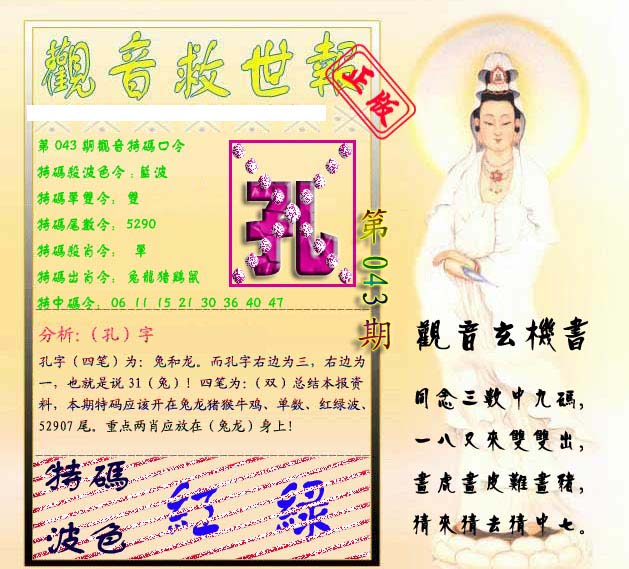 觀音救世報
正版
第043期觀音特碼口令
特碼殺波色令：藍波
特碼單雙令： 雙
特碼尾數令： 5290
特碼殺肖令： 單
特碼出肖令： 兔龍豬鷄鼠
特中碼令： 06 11 15 21 30 36 40 47
孔
第043期
分析:（孔）字
孔字（四笔）为：兔和龙。而孔字右边为三，右边为
一，也就是说 31（兔）！四笔为:（双）总结本报资
料，本期特码应该开在兔龙猪猴牛鸡、单数、红绿波、
52907 尾。重点两肖应放在（兔龙）身上!
特碼
波色
紅 綠
觀音玄機書
同念三數中九碼，
一八又來雙雙出，
畫虎畫皮難畫豬，
猜來猜去猜中七。